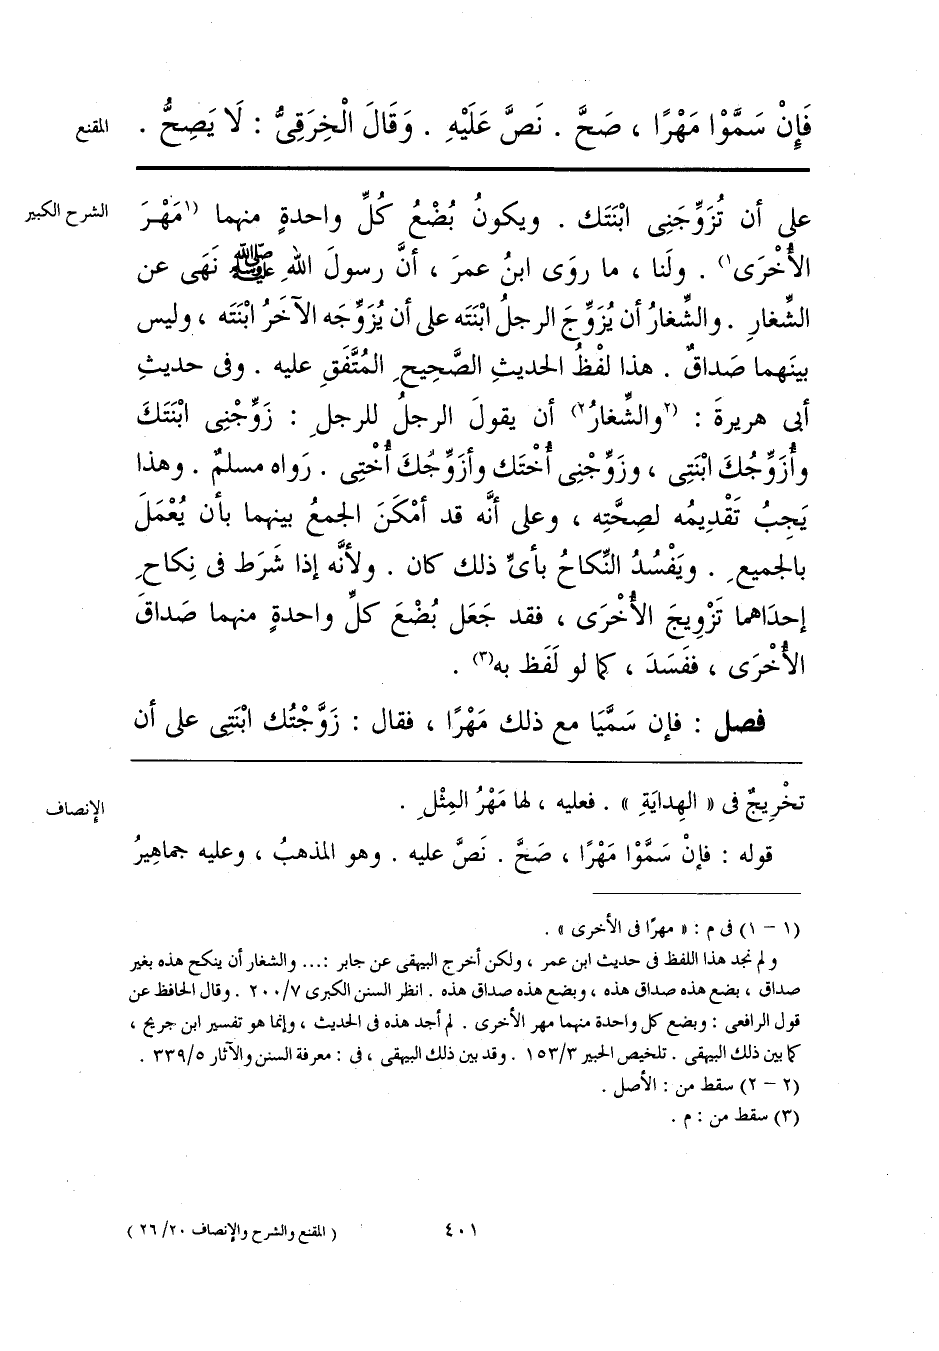 المقنع
فَإِنْ سَمَّوْا مَهْرًا ، صَحَّ . نَصَّ عَلَيْهِ . وَقَالَ الْخِرَقِىُّ : لَا يَصِحُّ .
الشرح الكبير
على أن تُزَوِّجَنِى ابْنَتَك . ويكونُ بُضْعُ كُلِّ واحدةٍ منهما (١مَهْرَ
الأُخْرَى١) . ولَنا ، ما روَى ابنُ عمرَ ، أنَّ رسولَ اللهِ ﷺ نَهَى عن
الشِّغارِ . والشِّغارُ أن يُزَوِّجَ الرجلُ ابْنَتَه على أن يُزَوِّجَه الآخَرُ ابْنَتَه ، وليس
بينَهما صَداقٌ . هذا لفْظُ الحديثِ الصَّحيحِ المُتَّفَقِ عليه . وفى حديثِ
أبى هريرةَ : (٢والشِّغارُ٢) أن يقولَ الرجلُ للرجلِ : زَوِّجْنِى ابْنَتَكَ
وأُزَوِّجُكَ ابْنَتِى ، وزَوِّجْنِى أُخْتَك وأزَوِّجُكَ أُخْتِى . رَواه مسلمٌ . وهذا
يَجِبُ تَقْدِيمُه لصِحَّتِه ، وعلى أنَّه قد أمْكَنَ الجمعُ بينهما بأن يُعْمَلَ
بالجميعِ . ويَفْسُدُ النِّكاحُ بأىِّ ذلك كان . ولأنَّه إذا شَرَط فى نِكاحِ
إحدَاهما تَزْوِيجَ الأُخْرَى ، فقد جَعَل بُضْعَ كلِّ واحدةٍ منهما صَداقَ
الأُخْرَى ، ففَسَدَ ، كما لو لَفَظ به(٣) .
فصل : فإن سَمَّيَا مع ذلك مَهْرًا ، فقال : زَوَّجْتُك ابْنَتِى على أن
الإنصاف
تخْرِيجٌ فى « الهِدايَةِ » . فعليه ، لها مَهْرُ المِثْلِ .
قوله : فإنْ سَمَّوْا مَهْرًا ، صَحَّ . نَصَّ عليه . وهو المذهبُ ، وعليه جماهِيرُ
(١ – ١) فى م : « مهرًا فى الأخرى » .
ولم نجد هذا اللفظ فى حديث ابن عمر ، ولكن أخرج البيهقى عن جابر : ... والشغار أن ينكح هذه بغير
صداق ، بضع هذه صداق هذه ، وبضع هذه صداق هذه . انظر السنن الكبرى ٢٠٠/٧ . وقال الحافظ عن
قول الرافعى : وبضع كل واحدة منهما مهر الأخرى . لم أجد هذه فى الحديث ، وإنما هو تفسير ابن جريج ،
كما بين ذلك البيهقى . تلخيص الحبير ١٥٣/٣ . وقد بين ذلك البيهقى ، فى : معرفة السنن والآثار ٣٣٩/٥ .
(٢ – ٢) سقط من : الأصل .
(٣) سقط من : م .
٤٠١
( المقنع والشرح والإنصاف ٢٦/٢٠ )